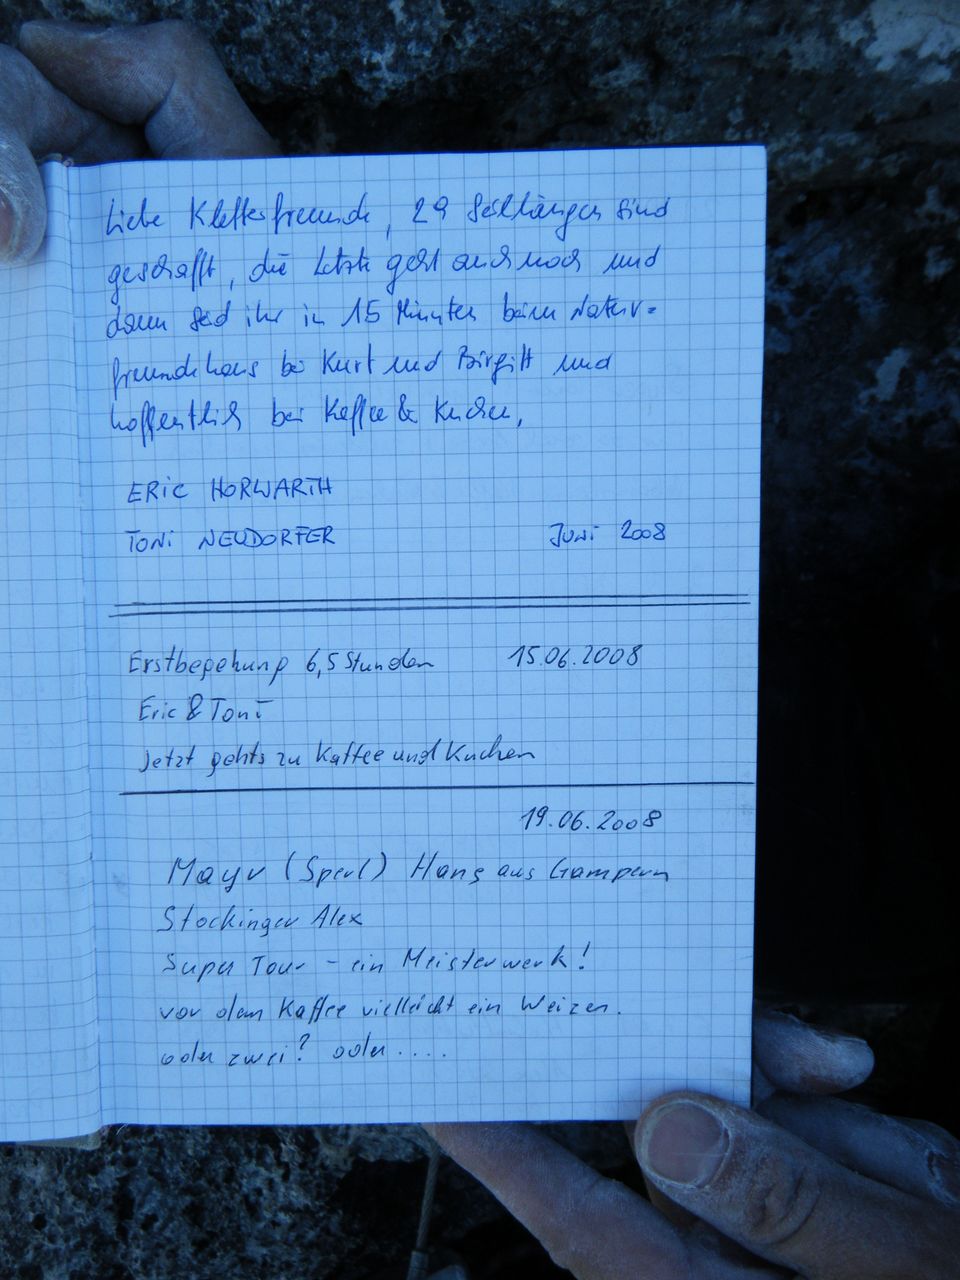 Liebe Kletterfreunde, 29 Seillängen sind
geschafft, die letzte geht auch noch und
dann seid ihr in 15 Minuten beim Natur=
freundehaus bei Kurt und Birgitt und
hoffentlich bei Kaffee & Kuchen,
ERiC HORWARTH
TONi NEUDORFER JUNi 2008
Erstbegehung 6,5 Stunden 15.06.2008
Eric & Toni
Jetzt gehts zu Kaffee und Kuchen
19.06.2008
Mayr (Sperl) Hans aus Gampern
Stockinger Alex
Super Tour - ein Meisterwerk!
vor dem Kaffee vielleicht ein Weizen.
oder zwei? oder....